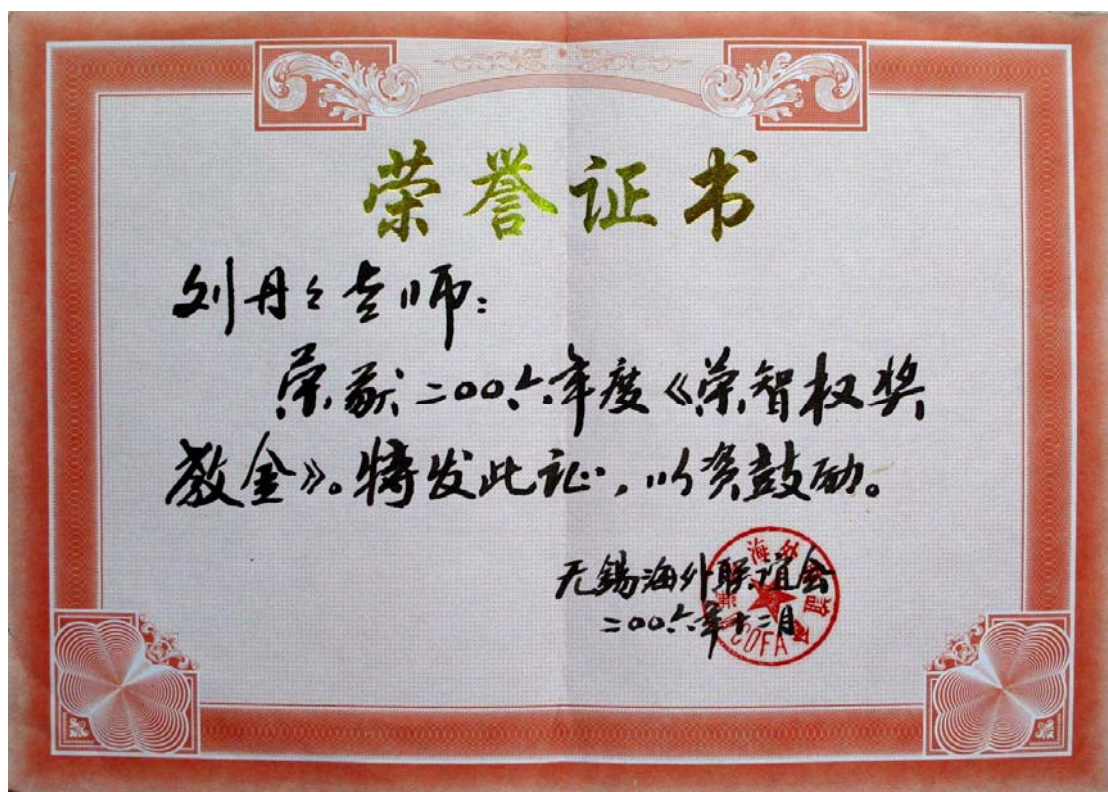 荣誉证书
刘丹丹老师：
荣获二〇〇六年度《荣智权奖
教金》。特发此证，以资鼓励。
无錫海外联谊会
二〇〇六年十二月
COFA